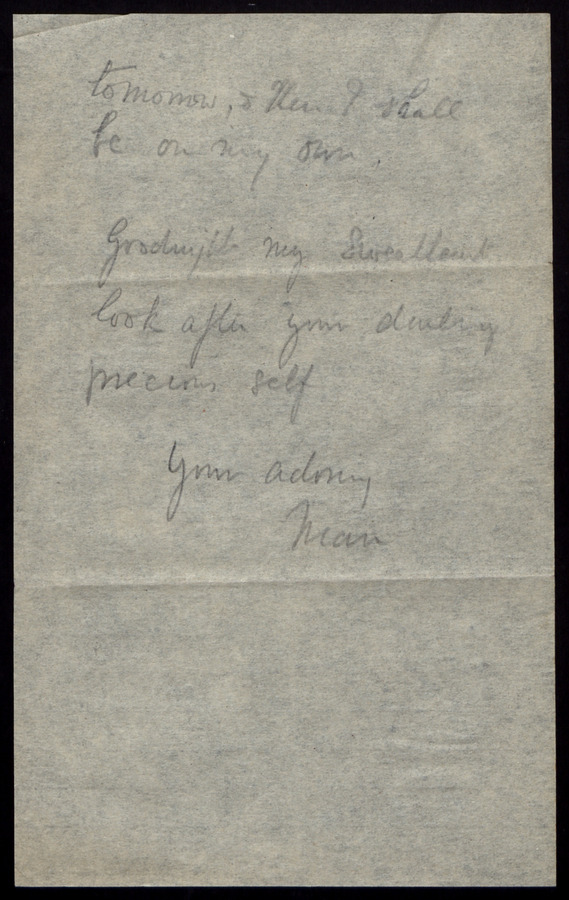 tomorrow, & then I shall
be on my own.
Goodnight my Sweetheart
look after your darling
precious self
Your adoring
Man